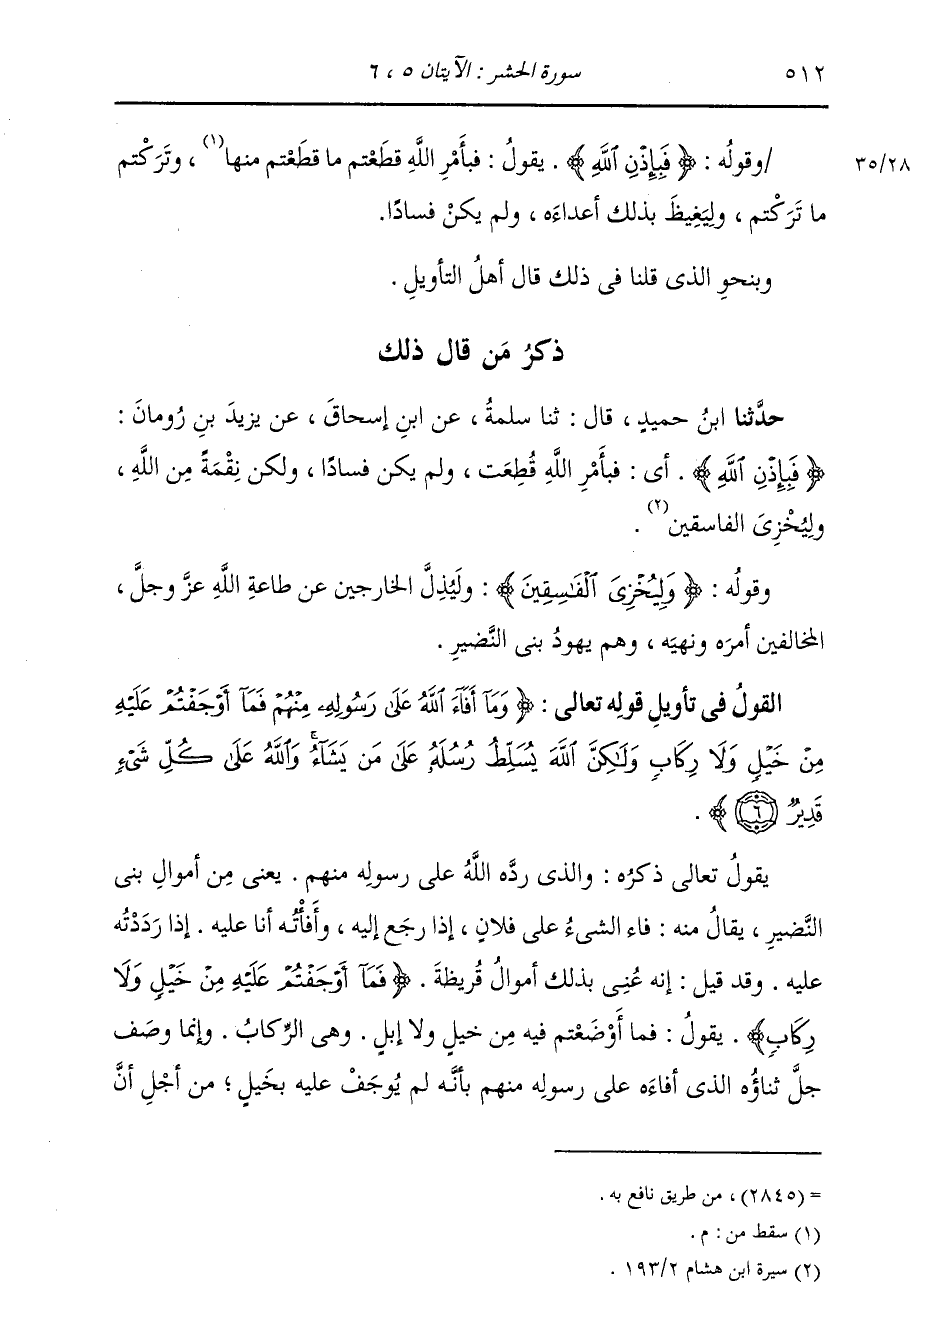 ٥١٢ سورة الحشر : الآيتان ٥ ، ٦
٣٥/٢٨ /وقولُه : ﴿ فَبِإِذْنِ ٱللَّهِ ﴾ . يقولُ : فبأَمْرِ اللَّهِ قطَعْتم ما قطَعْتم منها(١) ، وتَرَكْتم
ما تَرَكْتم ، وليَغِيظَ بذلك أعداءَه ، ولم يكنْ فسادًا.
وبنحوِ الذى قلنا فى ذلك قال أهلُ التأويلِ .
ذكرُ مَن قال ذلك
حدَّثنا ابنُ حميدٍ ، قال : ثنا سلمةُ ، عن ابنِ إسحاقَ ، عن يزيدَ بنِ رُومانَ :
﴿ فَبِإِذْنِ ٱللَّهِ ﴾ . أى : فبأَمْرِ اللَّهِ قُطِعَت ، ولم يكن فسادًا ، ولكن نِقْمَةً مِن اللَّهِ ،
وليُخْزِىَ الفاسقين(٢) .
وقولُه : ﴿ وَلِيُخْزِىَ ٱلْفَٰسِقِينَ ﴾ : وليُذِلَّ الخارجين عن طاعةِ اللَّهِ عزَّ وجلَّ ،
المخالفين أمرَه ونهيَه ، وهم يهودُ بنى النَّضيرِ .
القولُ فى تأويلِ قولِه تعالى : ﴿ وَمَآ أَفَآءَ ٱللَّهُ عَلَىٰ رَسُولِهِۦ مِنْهُمْ فَمَآ أَوْجَفْتُمْ عَلَيْهِ
مِنْ خَيْلٍ وَلَا رِكَابٍ وَلَٰكِنَّ ٱللَّهَ يُسَلِّطُ رُسُلَهُۥ عَلَىٰ مَن يَشَآءُ ۚ وَٱللَّهُ عَلَىٰ كُلِّ شَىْءٍ
قَدِيرٌ ٦ ﴾ .
يقولُ تعالى ذكرُه : والذى ردَّه اللَّهُ على رسولِه منهم . يعنى مِن أموالِ بنى
النَّضيرِ ، يقالُ منه : فاء الشىءُ على فلانٍ ، إذا رجَع إليه ، وأَفَأْتُه أنا عليه . إذا رَدَدْتُه
عليه . وقد قيل : إنه عُنِى بذلك أموالُ قُريظةَ . ﴿ فَمَآ أَوْجَفْتُمْ عَلَيْهِ مِنْ خَيْلٍ وَلَا
رِكَابٍ﴾ . يقولُ : فما أَوْضَعْتم فيه مِن خيلٍ ولا إبلٍ . وهى الرِّكابُ . وإنما وصَف
جلَّ ثناؤُه الذى أفاءَه على رسولِه منهم بأنَّه لم يُوجَفْ عليه بخَيلٍ ؛ من أجْلِ أنَّ
= (٢٨٤٥) ، من طريق نافع به .
(١) سقط من : م .
(٢) سيرة ابن هشام ١٩٣/٢ .